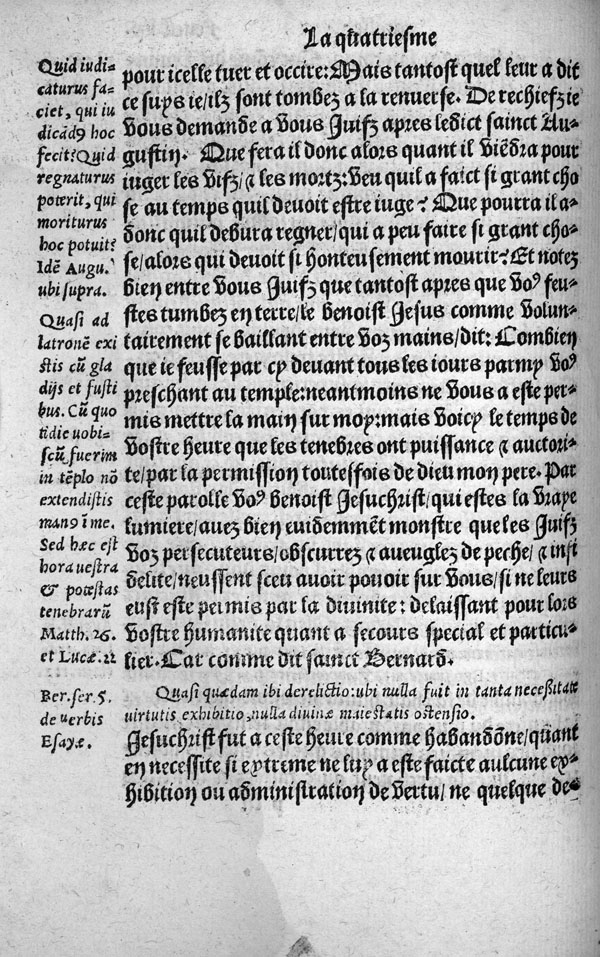 La quatriesme
Quid iudi-
caturus fa-
ciet, qui iu
dicãdꝰ hoc
fecit? Quid
regnaturus
poterit, qui
moriturus
hoc potuit?
Idẽ Augu.
ubi supra.
Quasi ad
latronẽ exi
stis cũ gla
dijs et fusti
bus. Cũ quo
tidie uobi-
scũ fuerim
in tẽplo nõ
extendistis
manꝰ ĩ me.
Sed hæc est
hora uestra
& potestas
tenebrarũ
Matth. 26.
et Lucæ. 22
Ber. ser. 5.
de uerbis
Esayæ.
pour icelle tuer et occire: Mais tantost quel leur a dit
ce suys ie/ilz sont tombez a la renuerse. De rechief ie
vous demande a vous Juifz apres ledict sainct Au-
gustin. Que fera il donc alors quant il viẽdra pour
iuger les vifz/ ⁊ les mortz: veu quil a faict si grant cho
se au temps quil devoit estre iuge? Que pourra il a-
donc quil debura regner/qui a peu faire si grant cho-
se/alors qui devoit si honteusement mourir? Et notez
bien entre vous Juifz que tantost apres que voꝰ feu-
stes tumbez en terre/le benoist Jesus comme volun-
tairement se baillant entre voz mains/dit: Combien
que ie feusse par cy devant tous les iours parmy voꝰ
preschant au temple: neantmoins ne vous a este per-
mis mettre la main sur moy: mais voicy le temps de
vostre heure que les tenebres ont puissance ⁊ auctori-
te/par la permission toutesfois de dieu mon pere. Par
ceste parolle voꝰ benoist Jesuchrist/qui estes la vraye
lumiere/avez bien euidemmẽt monstre que les Juifz
voz persecuteurs/obscurrez ⁊ aveuglez de peche/ ⁊ infi
delite/neussent sceu avoir povoir sur vous/si ne leurs
eust este permis par la divinite: delaissant pour lors
vostre humanite quant a secours special et particu-
lier. Car comme dit sainct Bernard.
Quasi quædam ibi derelictio: ubi nulla fuit in tanta necessitate
uirtutis exhibitio, nulla diuinæ maiestatis ostensio.
Jesuchrist fut a ceste heure comme habandõne/quant
en necessite si extreme ne luy a este faicte aulcune ex-
hibition ou administration de vertu/ ne quelque de-